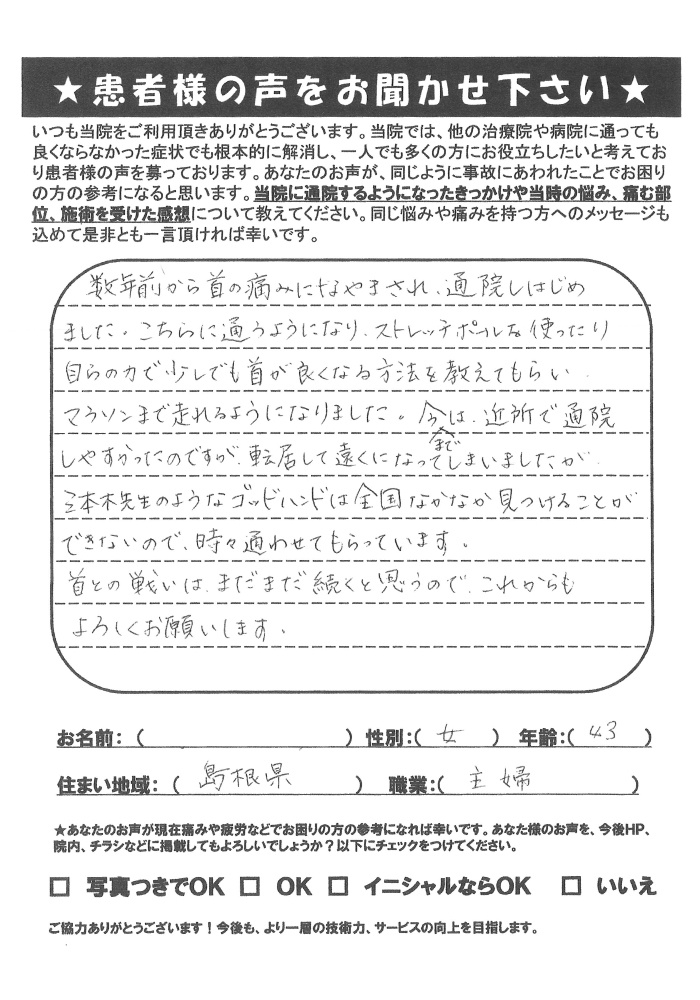 ★患者様の声をお聞かせ下さい★
いつも当院をご利用頂きありがとうございます。当院では、他の治療院や病院に通っても
良くならなかった症状でも根本的に解消し、一人でも多くの方にお役立ちしたいと考えてお
り患者様の声を募っております。あなたのお声が、同じように事故にあわれたことでお困り
の方の参考になると思います。当院に通院するようになったきっかけや当時の悩み、痛む部
位、施術を受けた感想について教えてください。同じ悩みや痛みを持つ方へのメッセージも
込めて是非とも一言頂ければ幸いです。
数年前から首の痛みになやまされ、通院しはじめ
ました。こちらに通うようになり、ストレッチポールを使ったり
自らの力で少しでも首が良くなる方法を教えてもらい、
マラソンまで走れるようになりました。今は、近所で通院
まで
しやすかったのですが、転居して遠くになってしまいましたが、
三本木先生のようなゴッドハンドは全国なかなか見つけることが
できないので、時々通わせてもらっています。
首との戦いは、まだまだ続くと思うので、これからも
よろしくお願いします。
お名前：（ ） 性別：（ 女 ） 年齢：（ 43 ）
住まい地域：（ 島根県 ） 職業：（ 主婦 ）
★あなたのお声が現在痛みや疲労などでお困りの方の参考になれば幸いです。あなた様のお声を、今後HP、
院内、チラシなどに掲載してもよろしいでしょうか？以下にチェックをつけてください。
□ 写真つきでOK □ OK □ イニシャルならOK □ いいえ
ご協力ありがとうございます！今後も、より一層の技術力、サービスの向上を目指します。